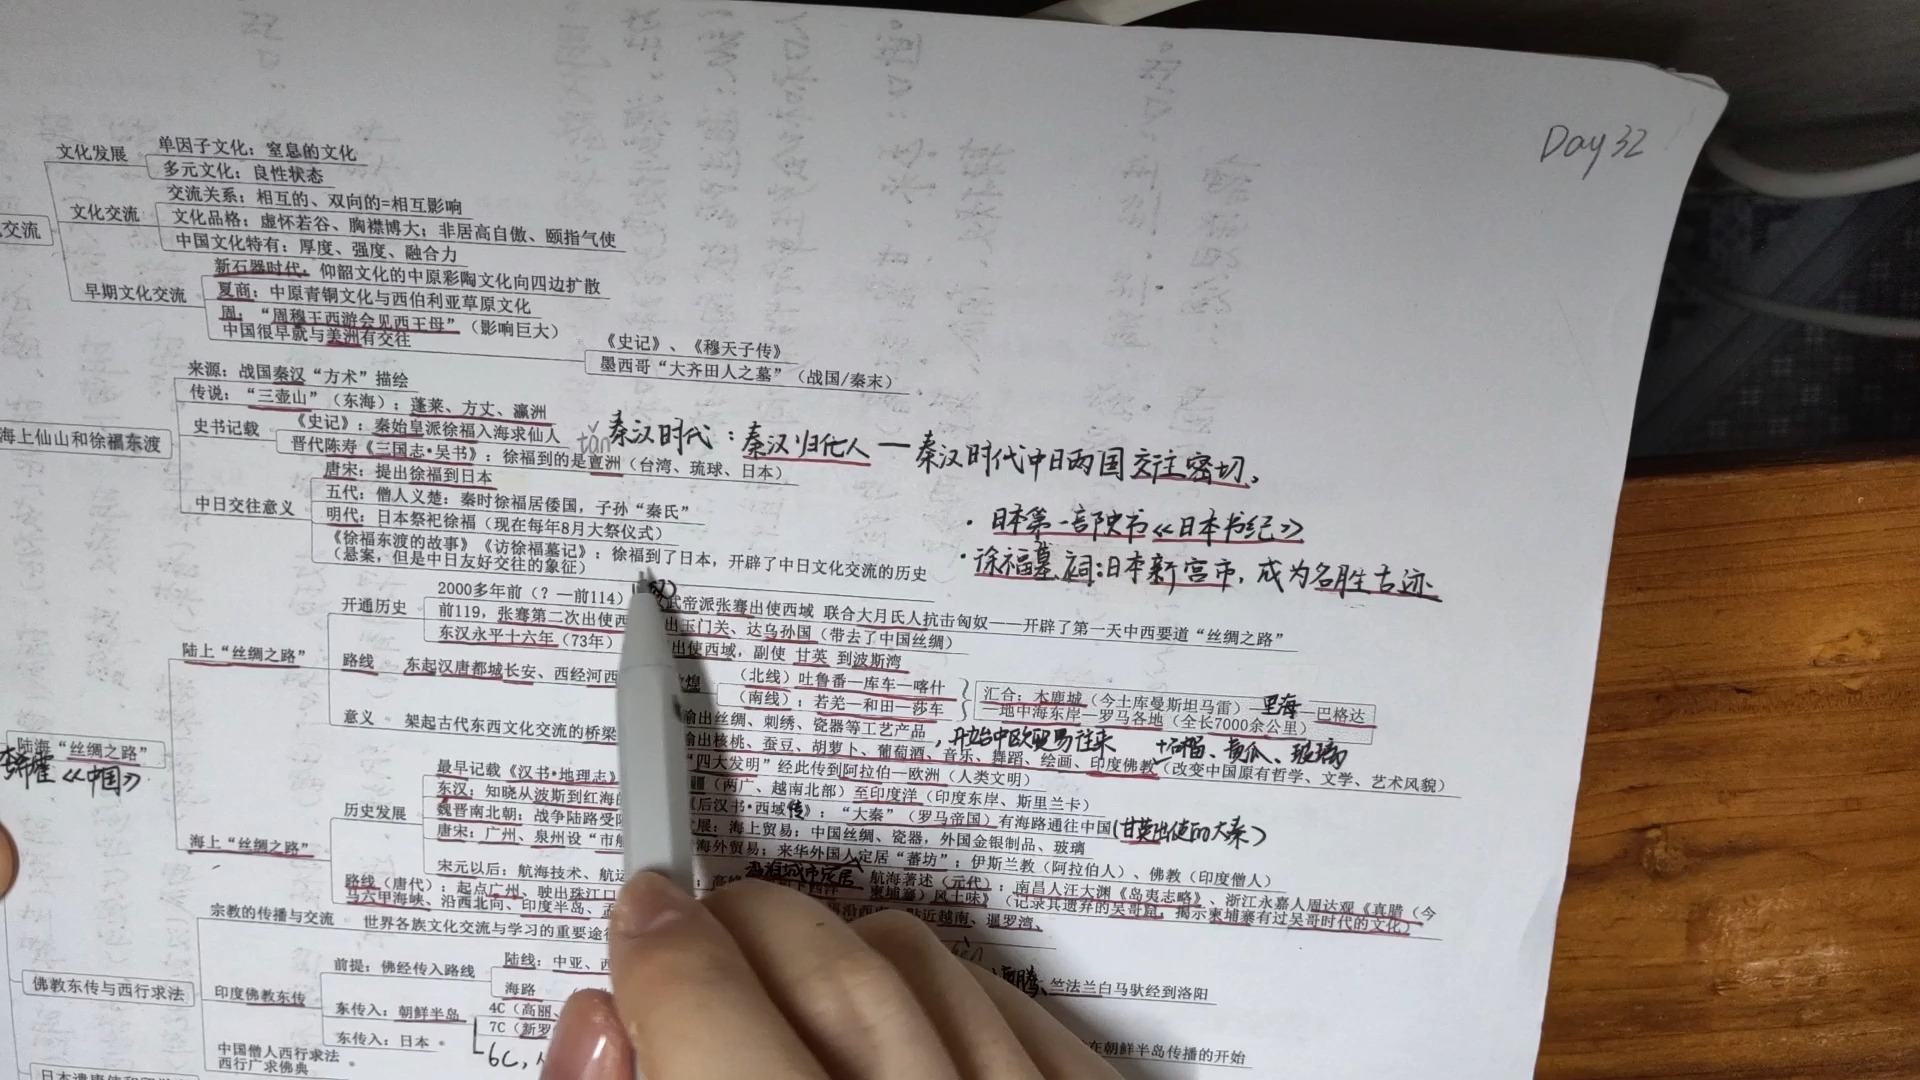 Day 32
文化发展
单因子文化：窒息的文化
多元文化：良性状态
交流
文化交流
交流关系：相互的、双向的=相互影响
文化品格：虚怀若谷、胸襟博大；非居高自傲、颐指气使
中国文化特有：厚度、强度、融合力
早期文化交流
新石器时代：仰韶文化的中原彩陶文化向四边扩散
夏商：中原青铜文化与西伯利亚草原文化
周：“周穆王西游会见西王母”（影响巨大）
中国很早就与美洲有交往
《史记》、《穆天子传》
墨西哥“大齐田人之墓”（战国/秦末）
海上仙山和徐福东渡
来源：战国秦汉“方术”描绘
传说：“三壶山”（东海）：蓬莱、方丈、瀛洲
史书记载
《史记》：秦始皇派徐福入海求仙人
晋代陈寿《三国志·吴书》：徐福到的是亶洲（台湾、琉球、日本）
tǎn
秦汉时代：秦汉归化人—秦汉时代中日两国交往密切。
·日本第一部史书《日本书纪》
·徐福墓、祠：日本新宫市，成为名胜古迹
中日交往意义
唐宋：提出徐福到日本
五代：僧人义楚：秦时徐福居倭国，子孙“秦氏”
明代：日本祭祀徐福（现在每年8月大祭仪式）
《徐福东渡的故事》《访徐福墓记》：徐福到了日本，开辟了中日文化交流的历史
（悬案，但是中日友好交往的象征）
陆海“丝绸之路”
《中国》
陆上“丝绸之路”
开通历史
2000多年前（？—前114）
武帝派张骞出使西域 联合大月氏人抗击匈奴——开辟了第一天中西要道“丝绸之路”
前119，张骞第二次出使西
出玉门关、达乌孙国（带去了中国丝绸）
东汉永平十六年（73年）
出使西域，副使 甘英 到波斯湾
路线
东起汉唐都城长安、西经河西
煌
（北线）吐鲁番—库车—喀什
（南线）：若羌—和田—莎车
汇合：木鹿城（今土库曼斯坦马雷）—里海—巴格达
—地中海东岸—罗马各地（全长7000余公里）
意义
架起古代东西文化交流的桥梁
输出丝绸、刺绣、瓷器等工艺产品，开始中欧贸易往来
+石榴、黄瓜、玻璃
输出核桃、蚕豆、胡萝卜、葡萄酒、音乐、舞蹈、绘画、印度佛教（改变中国原有哲学、文学、艺术风貌）
“四大发明”经此传到阿拉伯—欧洲（人类文明）
海上“丝绸之路”
历史发展
最早记载《汉书·地理志》
（两广、越南北部）至印度洋（印度东岸、斯里兰卡）
东汉：知晓从波斯到红海的
《后汉书·西域传》：“大秦”（罗马帝国）有海路通往中国（甘英出使的大秦）
魏晋南北朝：战争陆路受阻
展：海上贸易：中国丝绸、瓷器，外国金银制品、玻璃
唐宋：广州、泉州设“市舶
海外贸易；来华外国人定居“蕃坊”；伊斯兰教（阿拉伯人）、佛教（印度僧人）
宋元以后：航海技术、航运
航海著述（元代）：南昌人汪大渊《岛夷志略》、浙江永嘉人周达观《真腊（今
柬埔寨）风土味》（记录其遗弃的吴哥窟，揭示柬埔寨有过吴哥时代的文化）
路线（唐代）：起点广州、驶出珠江口
贴近越南、暹罗湾、
马六甲海峡、沿西北向、印度半岛、孟
佛教东传与西行求法
宗教的传播与交流
世界各族文化交流与学习的重要途径
印度佛教东传
前提：佛经传入路线
陆线：中亚、西
海路
腾、竺法兰白马驮经到洛阳
东传入：朝鲜半岛
4C（高丽、
7C（新罗
6C，
在朝鲜半岛传播的开始
东传入：日本
中国僧人西行求法
西行广求佛典